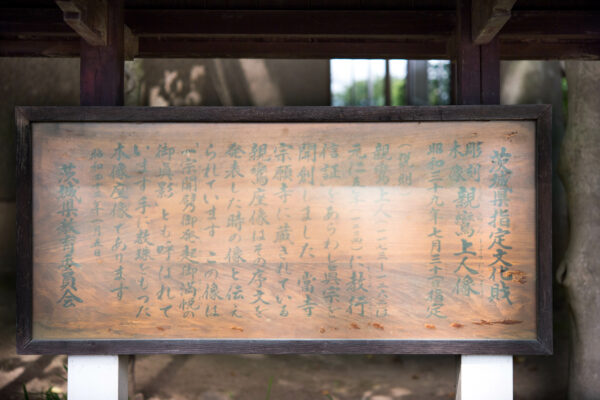 茨城県指定文化財
彫刻
木像 親鸞上人像
昭和三十九年七月三十一日指定
(説明)
親鸞上人(一一七三―一二六二)は
元仁元年(一二二四)に教行
信証をあらわし眞宗を
開創しました 當寺
宗願寺に蔵されている
親鸞座像はその序文を
発表した時の像と伝え
られています この像は
宗開闢御発起御満悦の
御眞影とも呼ばれて
います 手に数珠をもった
木像座像であります
昭和四十
茨城県教育委員会